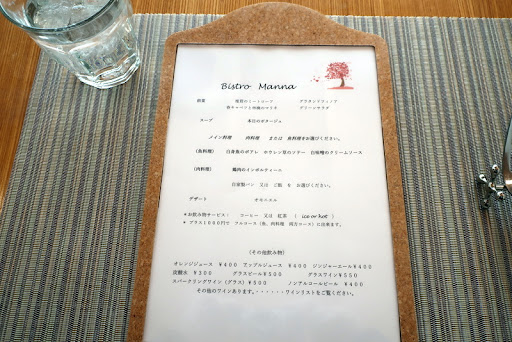 Bistro Manna
前菜　　グラタンドフィノア
グリーンサラダ
スープ　　本日のポタージュ
メイン料理　肉料理　または　魚料理をお選びください。
（魚料理）　白身魚のポアレ　ホウレン草のソテー　白味噌のクリームソース
（肉料理）　鶏肉のインボルティーニ
自家製パン　又は　ご飯　を　お選びください。
デザート
＊お飲み物サービス：　コーヒー　又は　紅茶　（ ice or hot ）
＊プラス１０００円で　フルコース（魚、肉料理　両方コース）に出来ます。
（その他飲み物）
オレンジジュース　￥４００　アップルジュース　￥４００　ジンジャーエール￥４００
炭酸水　￥３００　グラスビール￥５００　グラスワイン￥５５０
スパークリングワイン（グラス）￥５００　ノンアルコールビール　￥４００
その他のワインあります。・・・・・・ワインリストをご覧ください。